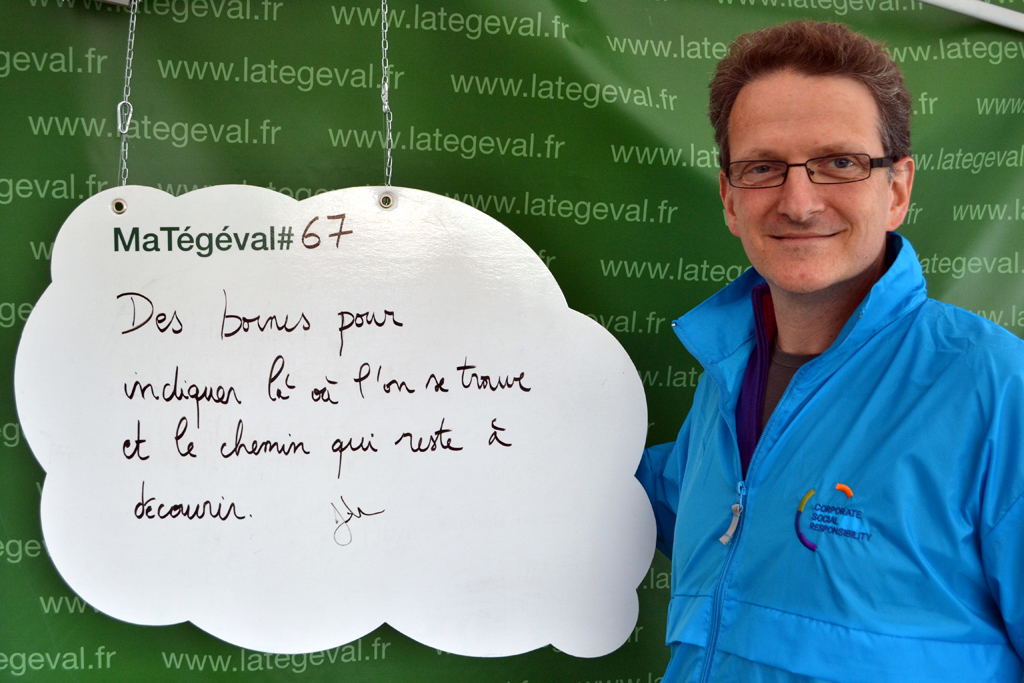 www.lategeval.fr www.lategeval.fr
www.lategeval.fr
www.lategeval.fr www.lategeval.fr
www.lategeval.fr www.lategeval.fr
www.lategeval.fr
www.lategeval.fr
MaTégéval# 67
Des bornes pour
indiquer là où l'on se trouve
et le chemin qui reste à
découvrir.
CORPORATE
SOCIAL
RESPONSIBILITY
www.lategeval.fr www.lategeval.fr